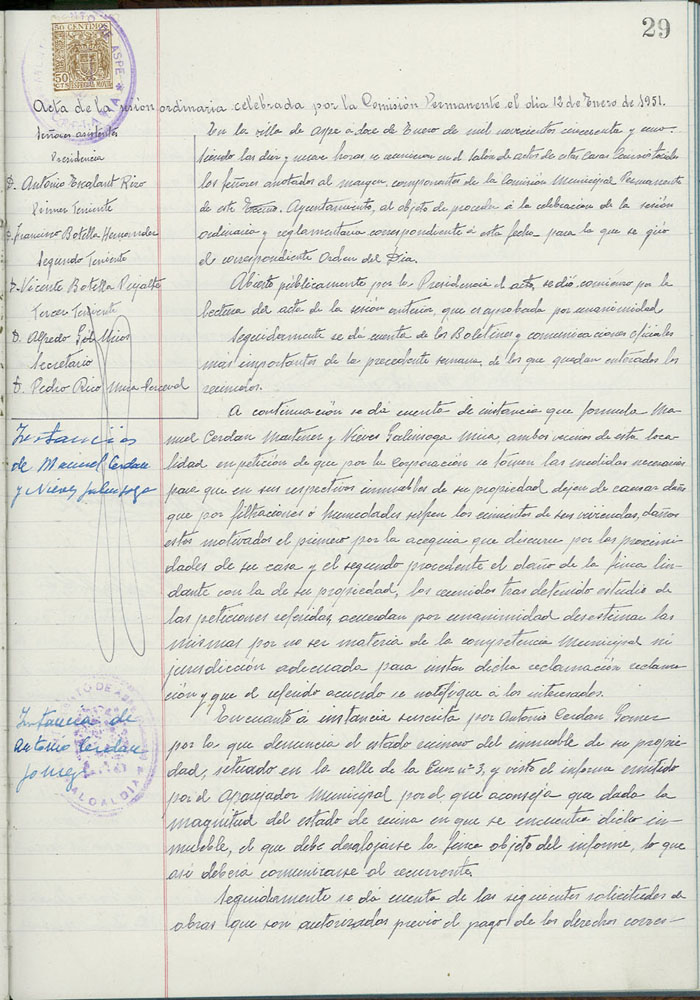 29
50 CENTIMOS
50 CTS ESPECIAL MOVIL
AYUNTAMIENTO DE ASPE
ALCALDIA
Acta de la sesión ordinaria celebrada por la Comisión Permanente el día 12 de Enero de 1951.
Señores asistentes
Presidencia
D. Antonio Escalant Rizo
Primer Teniente
D. Francisco Botella Hernandez
Segundo Teniente
D. Vicente Botella Pujalte
Tercer Teniente
D. Alfredo Gil Mico
Secretario
D. Pedro Rico Mira Perceval
En la villa de Aspe a doce de Enero de mil novecientos cincuenta y uno
siendo las diez y nueve horas se reunieron en el salón de actos de estas Casas Consistoriales
los señores anotados al margen, componentes de la Comisión Municipal Permanente
de este Excmo. Ayuntamiento, al objeto de proceder á la celebración de la sesión
ordinaria y reglamentaria correspondiente á esta fecha para la que se giró
el correspondiente Orden del Día.
Abierto públicamente por la Presidencia el acto, se dió comienzo por la
lectura del acta de la sesión anterior, que es aprobada por unanimidad
Seguidamente se dá cuenta de los Boletines y comunicaciones oficiales
mas importantes de la precedente semana, de los que quedan enterados los
reunidos.
Instancias
de Manuel Cerdan
y Nieves Galinsoga
A continuación se dá cuenta de instancia que formula Ma-
nuel Cerdan Martinez y Nieves Galinsoga Mira, ambos vecinos de esta loca-
lidad en petición de que por la Corporación se tomen las medidas necesarias
para que en sus respectivos inmuebles de su propiedad dejen de causar daños
que por filtraciones ó humedades sufren los cimientos de sus viviendas, daños
estos motivados el primero por la acequia que discurre por las proximi-
dades de su casa y el segundo procedente el daño de la finca lin-
dante con la de su propiedad, los reunidos tras detenido estudio de
las peticiones referidas, acuerdan por unanimidad desestimar las
mismas por no ser materia de la competencia Municipal ni
jurisdicción adecuada para instar dicha reclamación reclama-
ción y que el referido acuerdo se notifique á los interesados.
Instancia de
Antonio Cerdan
Gomez
AYUNTAMIENTO DE ASPE
ALCALDIA
En cuanto á instancia suscrita por Antonio Cerdan Gomez
por la que denuncia el estado ruinoso del inmueble de su propie-
dad, situado en la calle de la Cruz nº 3, y visto el informe emitido
por el Aparejador Municipal por el que aconseja que dada la
magnitud del estado de ruina en que se encuentra dicho in-
mueble, el que debe desalojarse la finca objeto del informe, lo que
así deberá comunicarse al recurrente.
Seguidamente se dá cuenta de las siguientes solicitudes de
obras que son autorizadas previo el pago de los derechos corres-